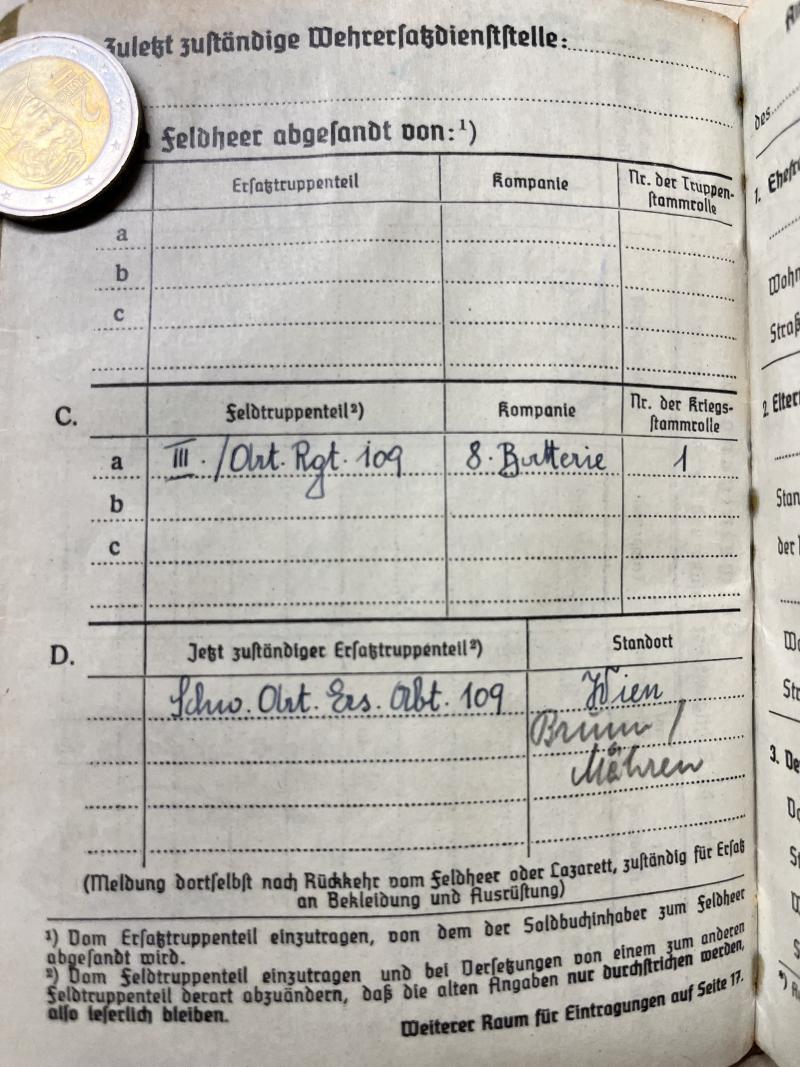 Zuletzt zuständige Wehrersatzdienststelle:
Feldheer abgesandt von:¹)
Ersatztruppenteil Kompanie Nr. der Truppen-
stammrolle
a
b
c
C. Feldtruppenteil²) Kompanie Nr. der Kriegs-
stammrolle
a III./Art. Rgt. 109 8. Batterie 1
b
c
D. Jetzt zuständiger Ersatztruppenteil²) Standort
Schw. Art. Ers. Abt. 109 Wien
Brünn /
Mähren
(Meldung dortselbst nach Rückkehr vom Feldheer oder Lazarett, zuständig für Ersatz
an Bekleidung und Ausrüstung)
¹) Vom Ersatztruppenteil einzutragen, von dem der Soldbuchinhaber zum Feldheer
abgesandt wird.
²) Vom Feldtruppenteil einzutragen und bei Versetzungen von einem zum anderen
Feldtruppenteil derart abzuändern, daß die alten Angaben nur durchstrichen werden,
also leserlich bleiben.
Weiterer Raum für Eintragungen auf Seite 17.
des
1.
2.
der
3.